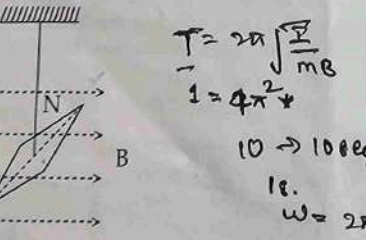 T = 2π √(I/mB)
1 = 4π² *
N
B
10 → 10sec
18.
ω = 2π